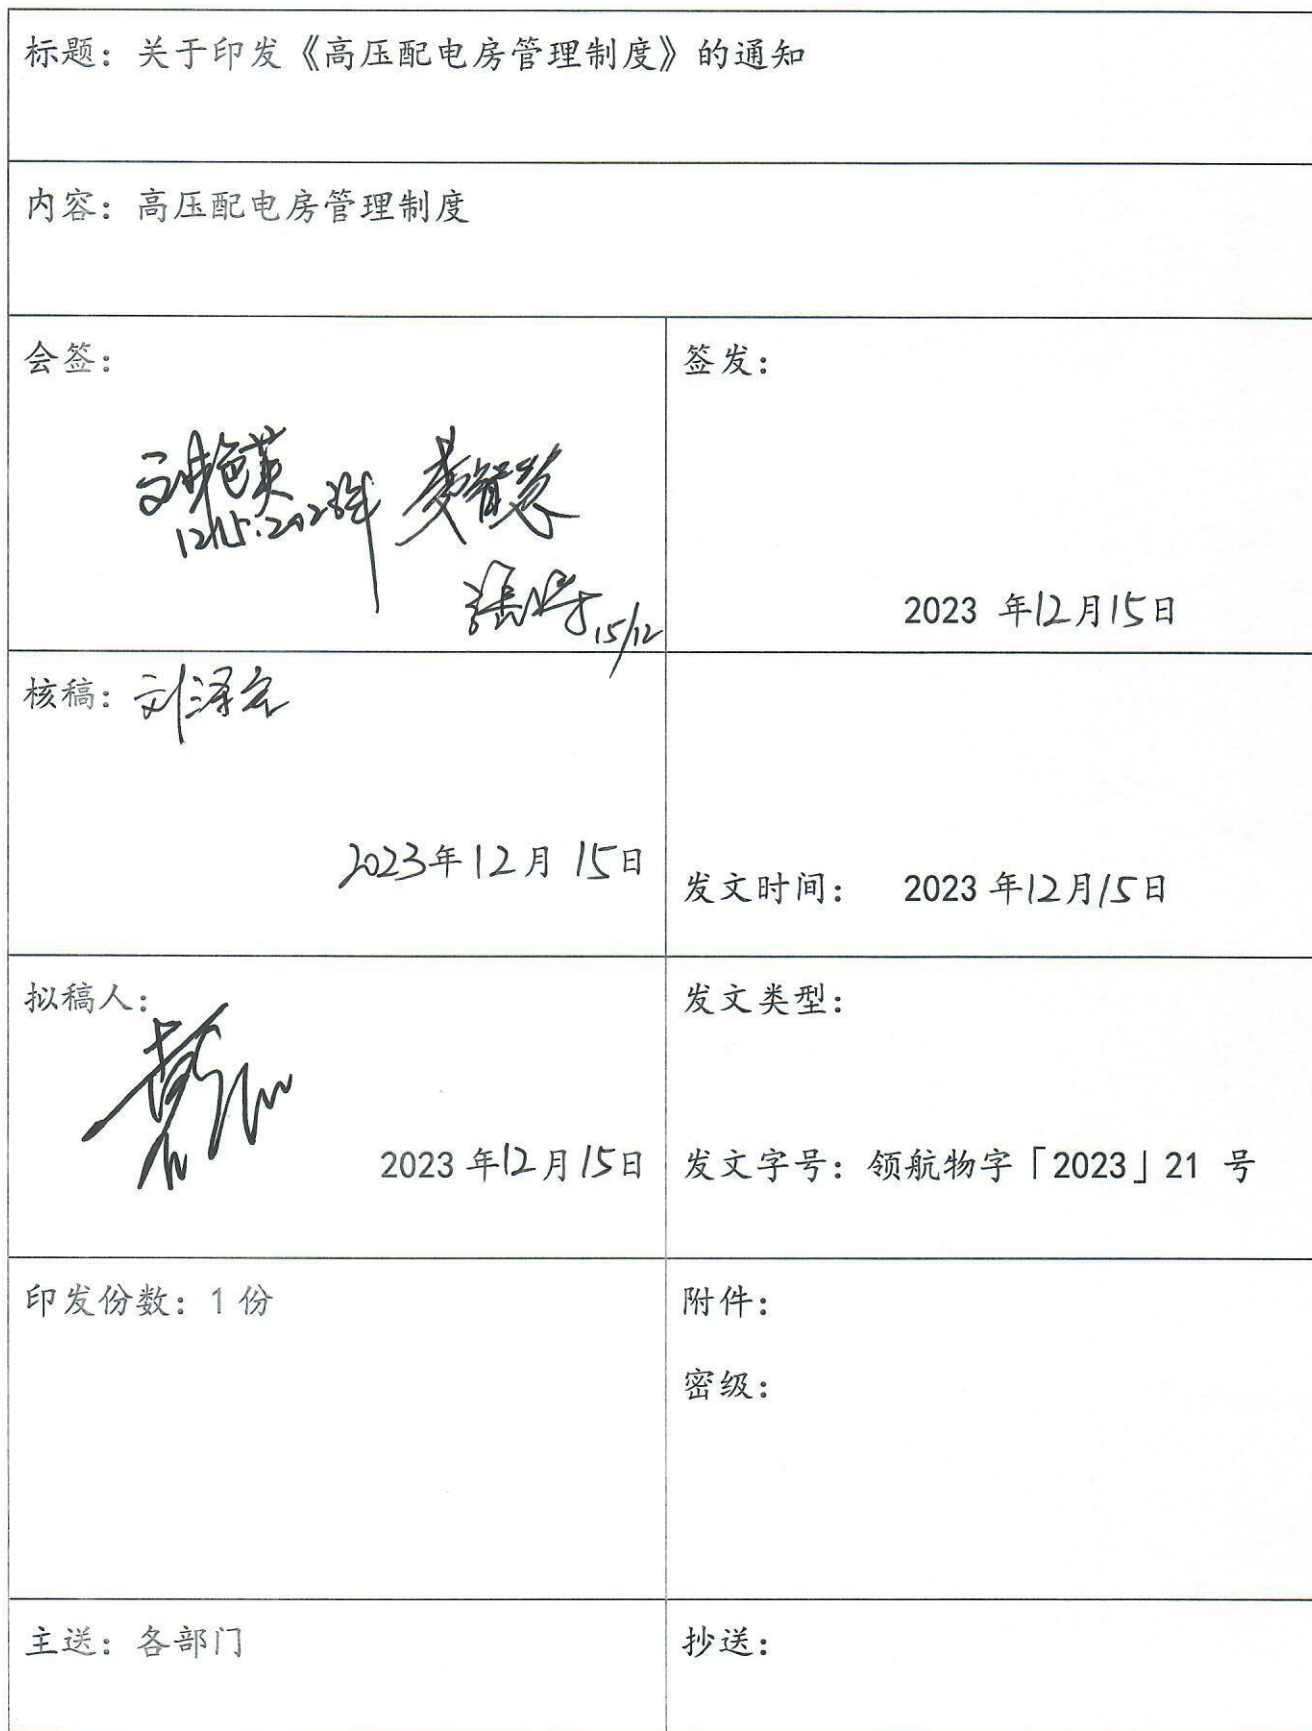 标题：关于印发《高压配电房管理制度》的通知
内容：高压配电房管理制度
会签：
15/12
签发：
2023 年12月15日
核稿：刘泽宏
2023年12月15日
发文时间： 2023 年12月15日
拟稿人：
2023 年12月15日
发文类型：
发文字号：领航物字「2023」21 号
印发份数：1 份
附件：
密级：
主送：各部门
抄送：